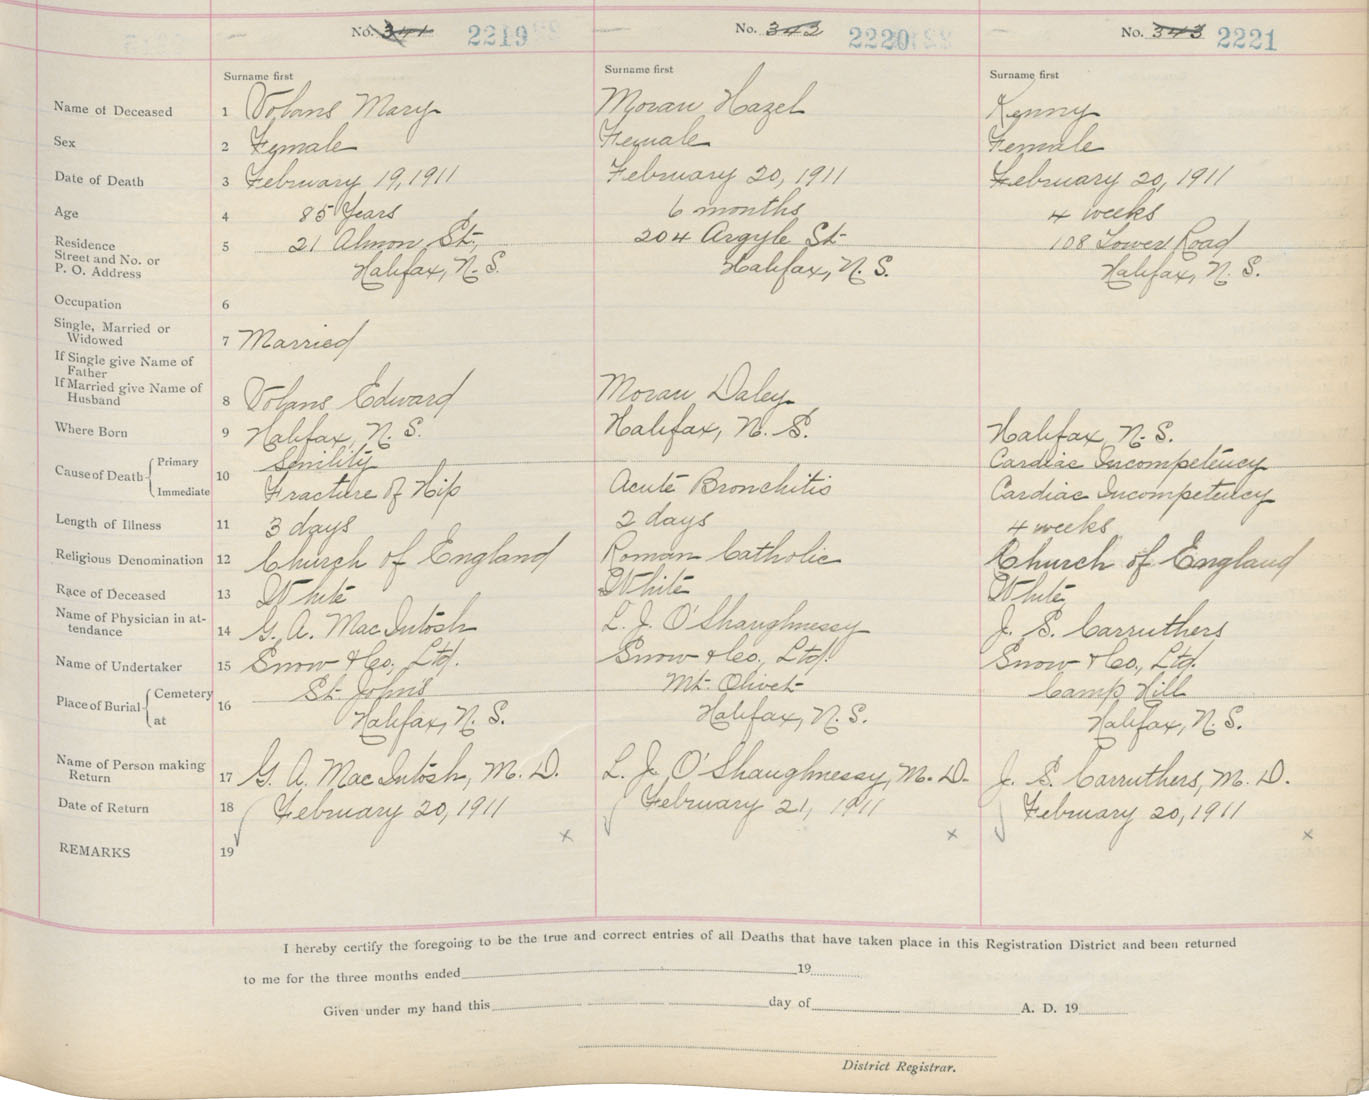 No. 341 2219
No. 342 2220
No. 343 2221
Surname first
Surname first
Surname first
Name of Deceased 1 Volans Mary Moran Hazel Kenny
Sex 2 Female Female Female
Date of Death 3 February 19, 1911 February 20, 1911 February 20, 1911
Age 4 85 Years 6 months 4 weeks
Residence 5 21 Almon St., 204 Argyle St. 108 Tower Road
Street and No. or
P. O. Address Halifax, N. S. Halifax, N. S. Halifax, N. S.
Occupation 6
Single, Married or
Widowed 7 Married
If Single give Name of
Father
If Married give Name of
Husband 8 Volans Edward Moran Daley
Where Born 9 Halifax, N. S. Halifax, N. S. Halifax, N. S.
Cause of Death Primary 10 Senility Cardiac Incompetency
Immediate Fracture of Hip Acute Bronchitis Cardiac Incompetency
Length of Illness 11 3 days 2 days 4 weeks
Religious Denomination 12 Church of England Roman Catholic Church of England
Race of Deceased 13 White White White
Name of Physician in at-
tendance 14 G. A. MacIntosh L. J. O'Shaughnessy J. S. Carruthers
Name of Undertaker 15 Snow & Co., Ltd. Snow & Co., Ltd. Snow & Co., Ltd.
Place of Burial Cemetery 16 St. John's Mt. Olivet Camp Hill
at Halifax, N. S. Halifax, N. S. Halifax, N. S.
Name of Person making
Return 17 G. A. MacIntosh, M. D. L. J. O'Shaughnessy, M. D. J. S. Carruthers, M. D.
Date of Return 18 February 20, 1911 February 21, 1911 February 20, 1911
REMARKS 19 x x x
I hereby certify the foregoing to be the true and correct entries of all Deaths that have taken place in this Registration District and been returned
to me for the three months ended 19
Given under my hand this day of A. D. 19
District Registrar.